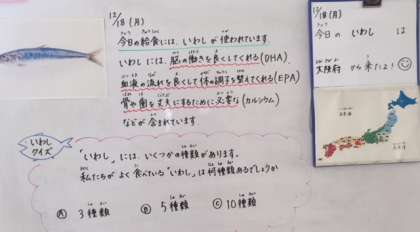 12/18 (月)
今日の給食には、いわしが使われています。
いわしには、脳の働きを良くしてくれる(DHA)
血液の流れを良くして体の調子を整えてくれる(EPA)
骨や歯を丈夫にするために必要な(カルシウム)
などが含まれています。
いわし
クイズ
「いわし」には、いくつかの種類があります。
私たちがよく食べている「いわし」は何種類あるでしょうか
Ⓐ 3種類 Ⓑ 5種類 Ⓒ 10種類
12/18 (月)
今日の いわし は
大阪府 から来たよ!